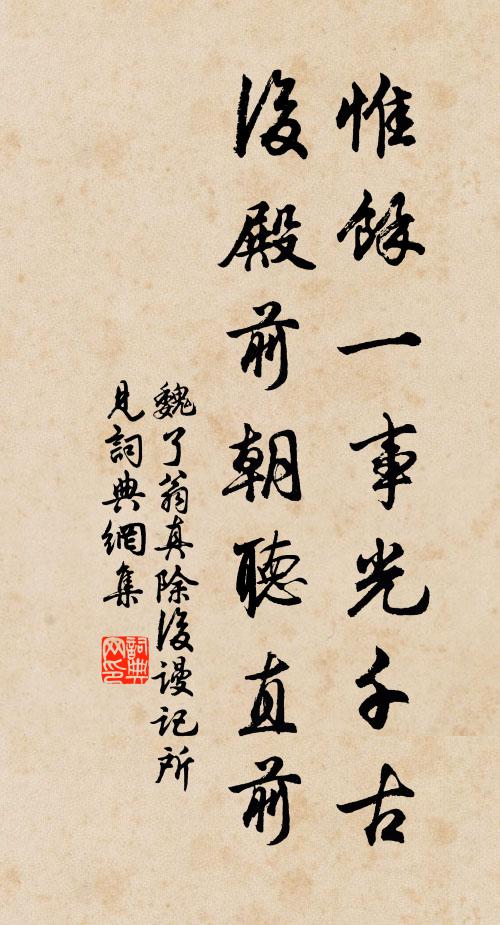 惟餘一事光千古
後殿前朝聽直前
魏了翁真除後謾記所
見詞典網集
詞典
网印